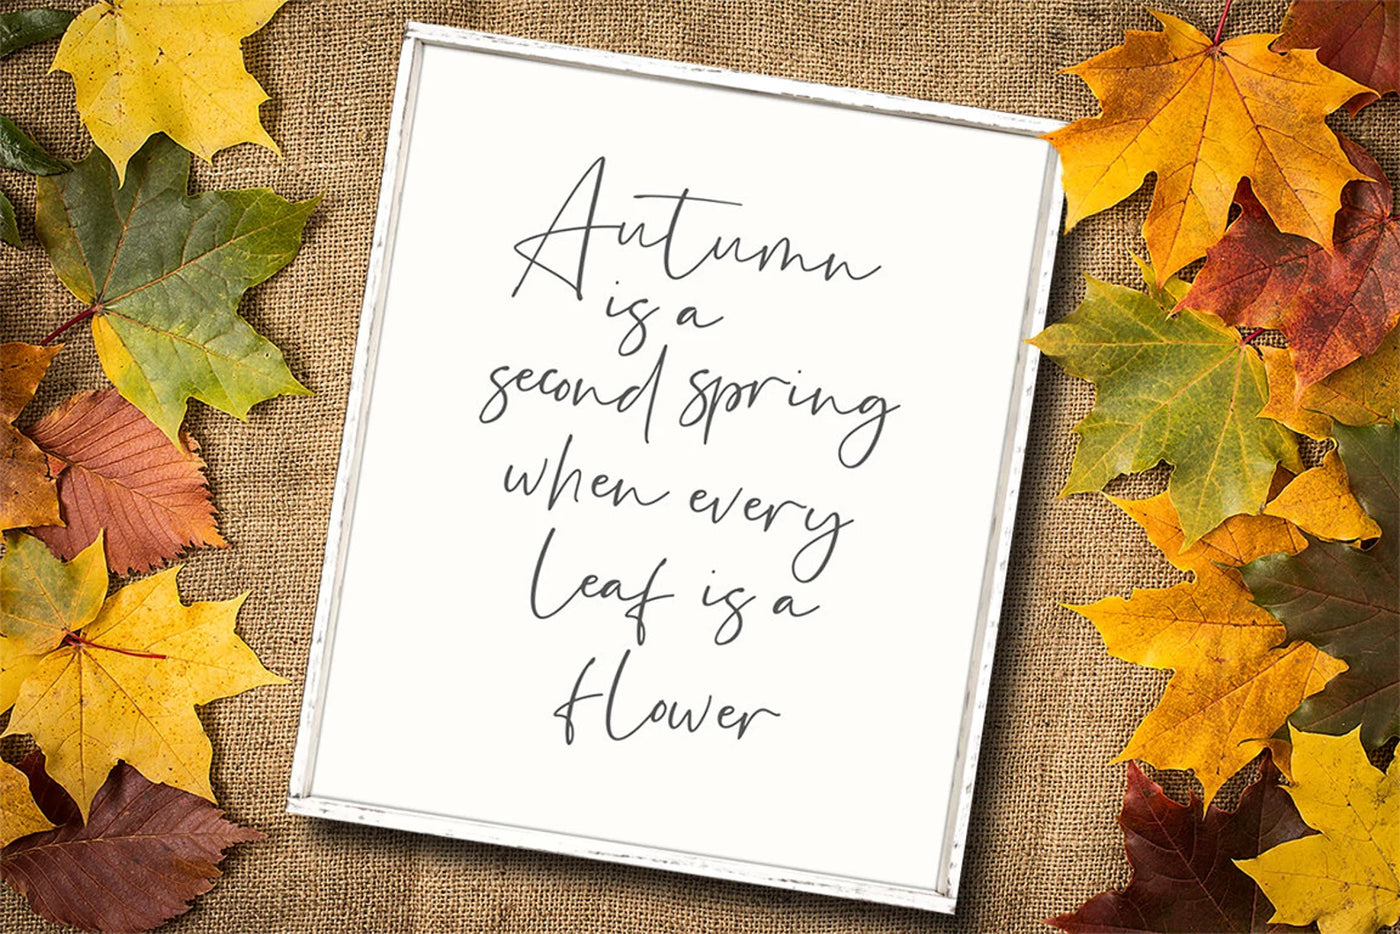 Autumn
is a
second spring
when every
leaf is a
flower